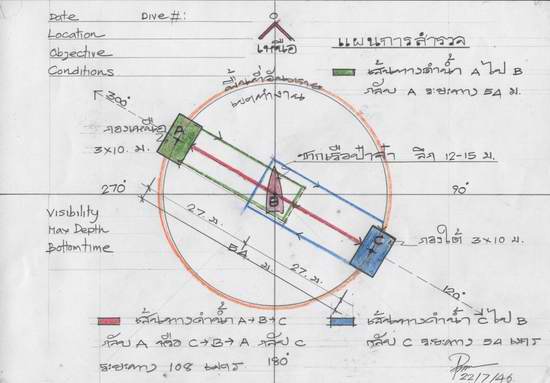 Date Dive #: 0°
Location
Objective
Conditions
เหนือ
แผนการสำรวจ
เส้นทางดำน้ำ A ไป B
กลับ A ระยะทาง 54 ม.
300°
A
กองเหนือ
3x10 ม.
ซากเรือป่าคำ ลึก 12-15 ม.
270°
90°
B
C
Visibility
Max Depth
Bottom time
27 ม.
54 ม.
27 ม.
กองใต้ 3x10 ม.
120°
เส้นทางดำน้ำ A→B→C
กลับ A หรือ C→B→A กลับ C
ระยะทาง 108 เมตร
180°
เส้นทางดำน้ำ C ไป B
กลับ C ระยะทาง 54 เมตร
22/7/46